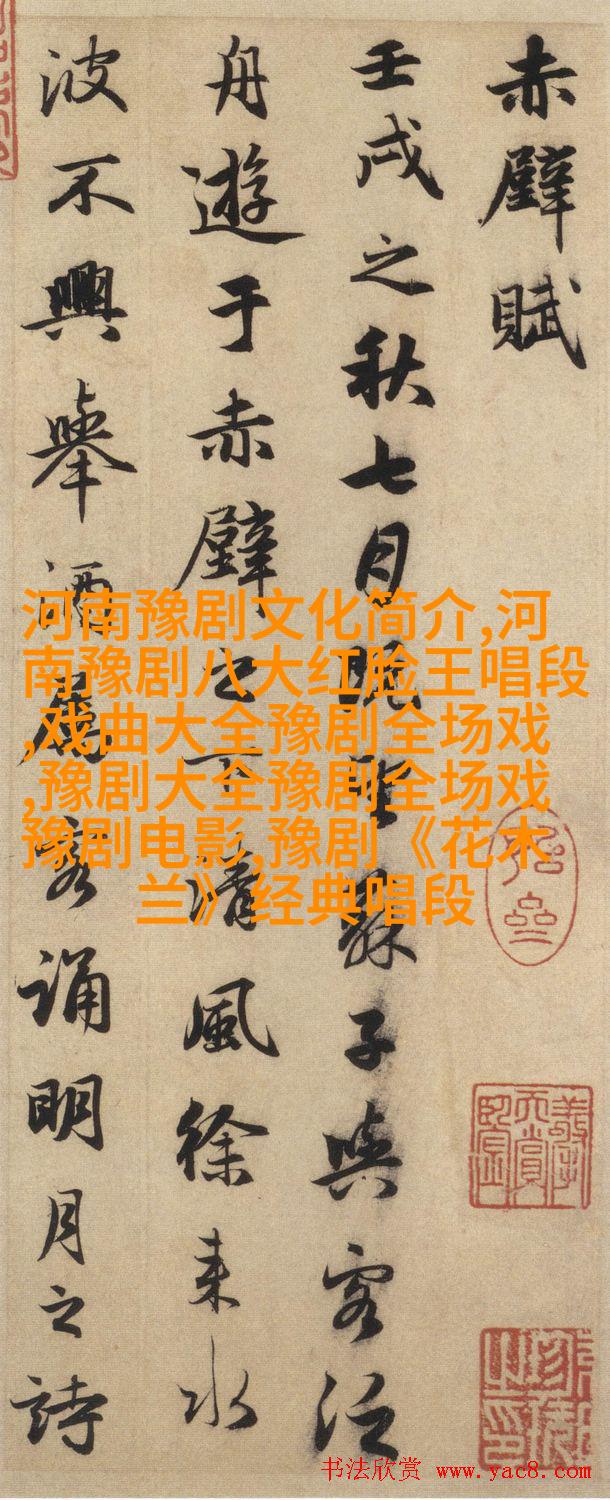 赤壁賦
壬戌之秋七月既望蘇子與客泛
舟遊于赤壁之下清風徐来水
波不興舉酒屬客誦明月之詩
河南豫剧文化简介,河
南豫剧八大红脸王唱段
,戏曲大全豫剧全场戏
,豫剧大全豫剧全场戏
豫剧电影,豫剧《花木
兰》经典唱段
书法欣赏 www.yac8.com